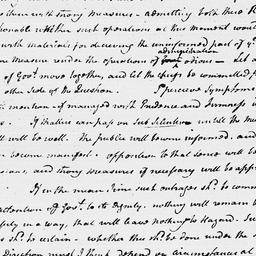 with strong measures - admitting both their
whether such operations at this moment would
with materials for deceiving the uninformed part of
measure under the operation of odious - Let
of Govt. move together, and let the chiefs be committed
other side of the Question. I perceive Symptoms
mention - if managed with Prudence and firmness
If that we can pass on sub Silentio until the
will be well. The public will become informed, and
become manifest. opposition to that sense will be
and strong measures if necessary will be app
If in the mean time such outrages shd. be comm
attention of Govt. to its dignity, nothing will remain
in a way, that will leave nothing to Hazard.
shd. be certain - whether this shd. be done under the
Direction must I think depend on circumstances at